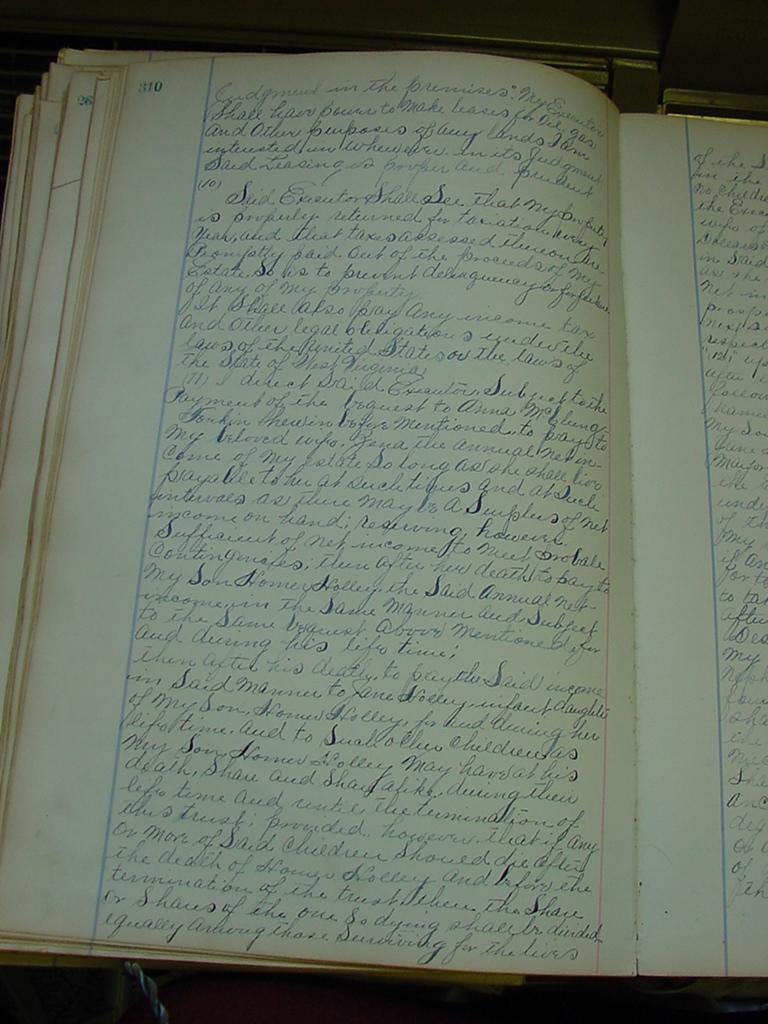 310
26
Judgment in the premises". My Executor
Shall have power to make leases for Oil, gas
and Other purposes of any lands I am
interested in whenever in its Judgment
Said Leasing is proper and prudent
(10)
Said Executor Shall See that My property
is properly returned for taxation every
Year, and that taxes assessed thereon are
Promptly paid out of the proceeds of My
Estate, So as to prevent delinquency or forfeiture
of any of my property.
It Shall also pay any income tax
and Other legal obligations under the
laws of the United States or the laws of
the State of West Virginia.
(11) I direct Said Executor, Subject to the
Payment of the bequest to Anna
herein before mentioned, to pay to
My beloved wife, Zena the annual net in-
come of My estate So long as she shall live
payable to her at such times and at Such
intervals as there may be a Surplus of net
income on hand; reserving, however
Sufficient of net income to meet probable
Contingencies; then after her death to pay to
My Son Homer Holley, the Said Annual net
income, in the Same Manner and Subject
to the Same bequest above mentioned for
and during his life time;
then after his death, to pay the Said income
in Said manner to Jane Holley, infant daughter
of My Son, Homer Holley, for and during her
life time, and to Such other Children as
My Son Homer Holley may have at his
death, Share and Share alike, during their
life time and until the termination of
this trust; provided, however, that if any
or more of Said Children Should die after
the death of Homer Holley and before the
termination of the trust, then the Share
or Shares of the one So dying shall be divided
equally among those Surviving for the lives
of the
in the
no Childre
the Exec
wife of
in Said
as she
net in
next
respect
"12"
after
follow
name
My So
Jane
the
unde
of
My
if an
for
to ta
after
Des
My
neph
sha
the
Sha
and
deg
or
of